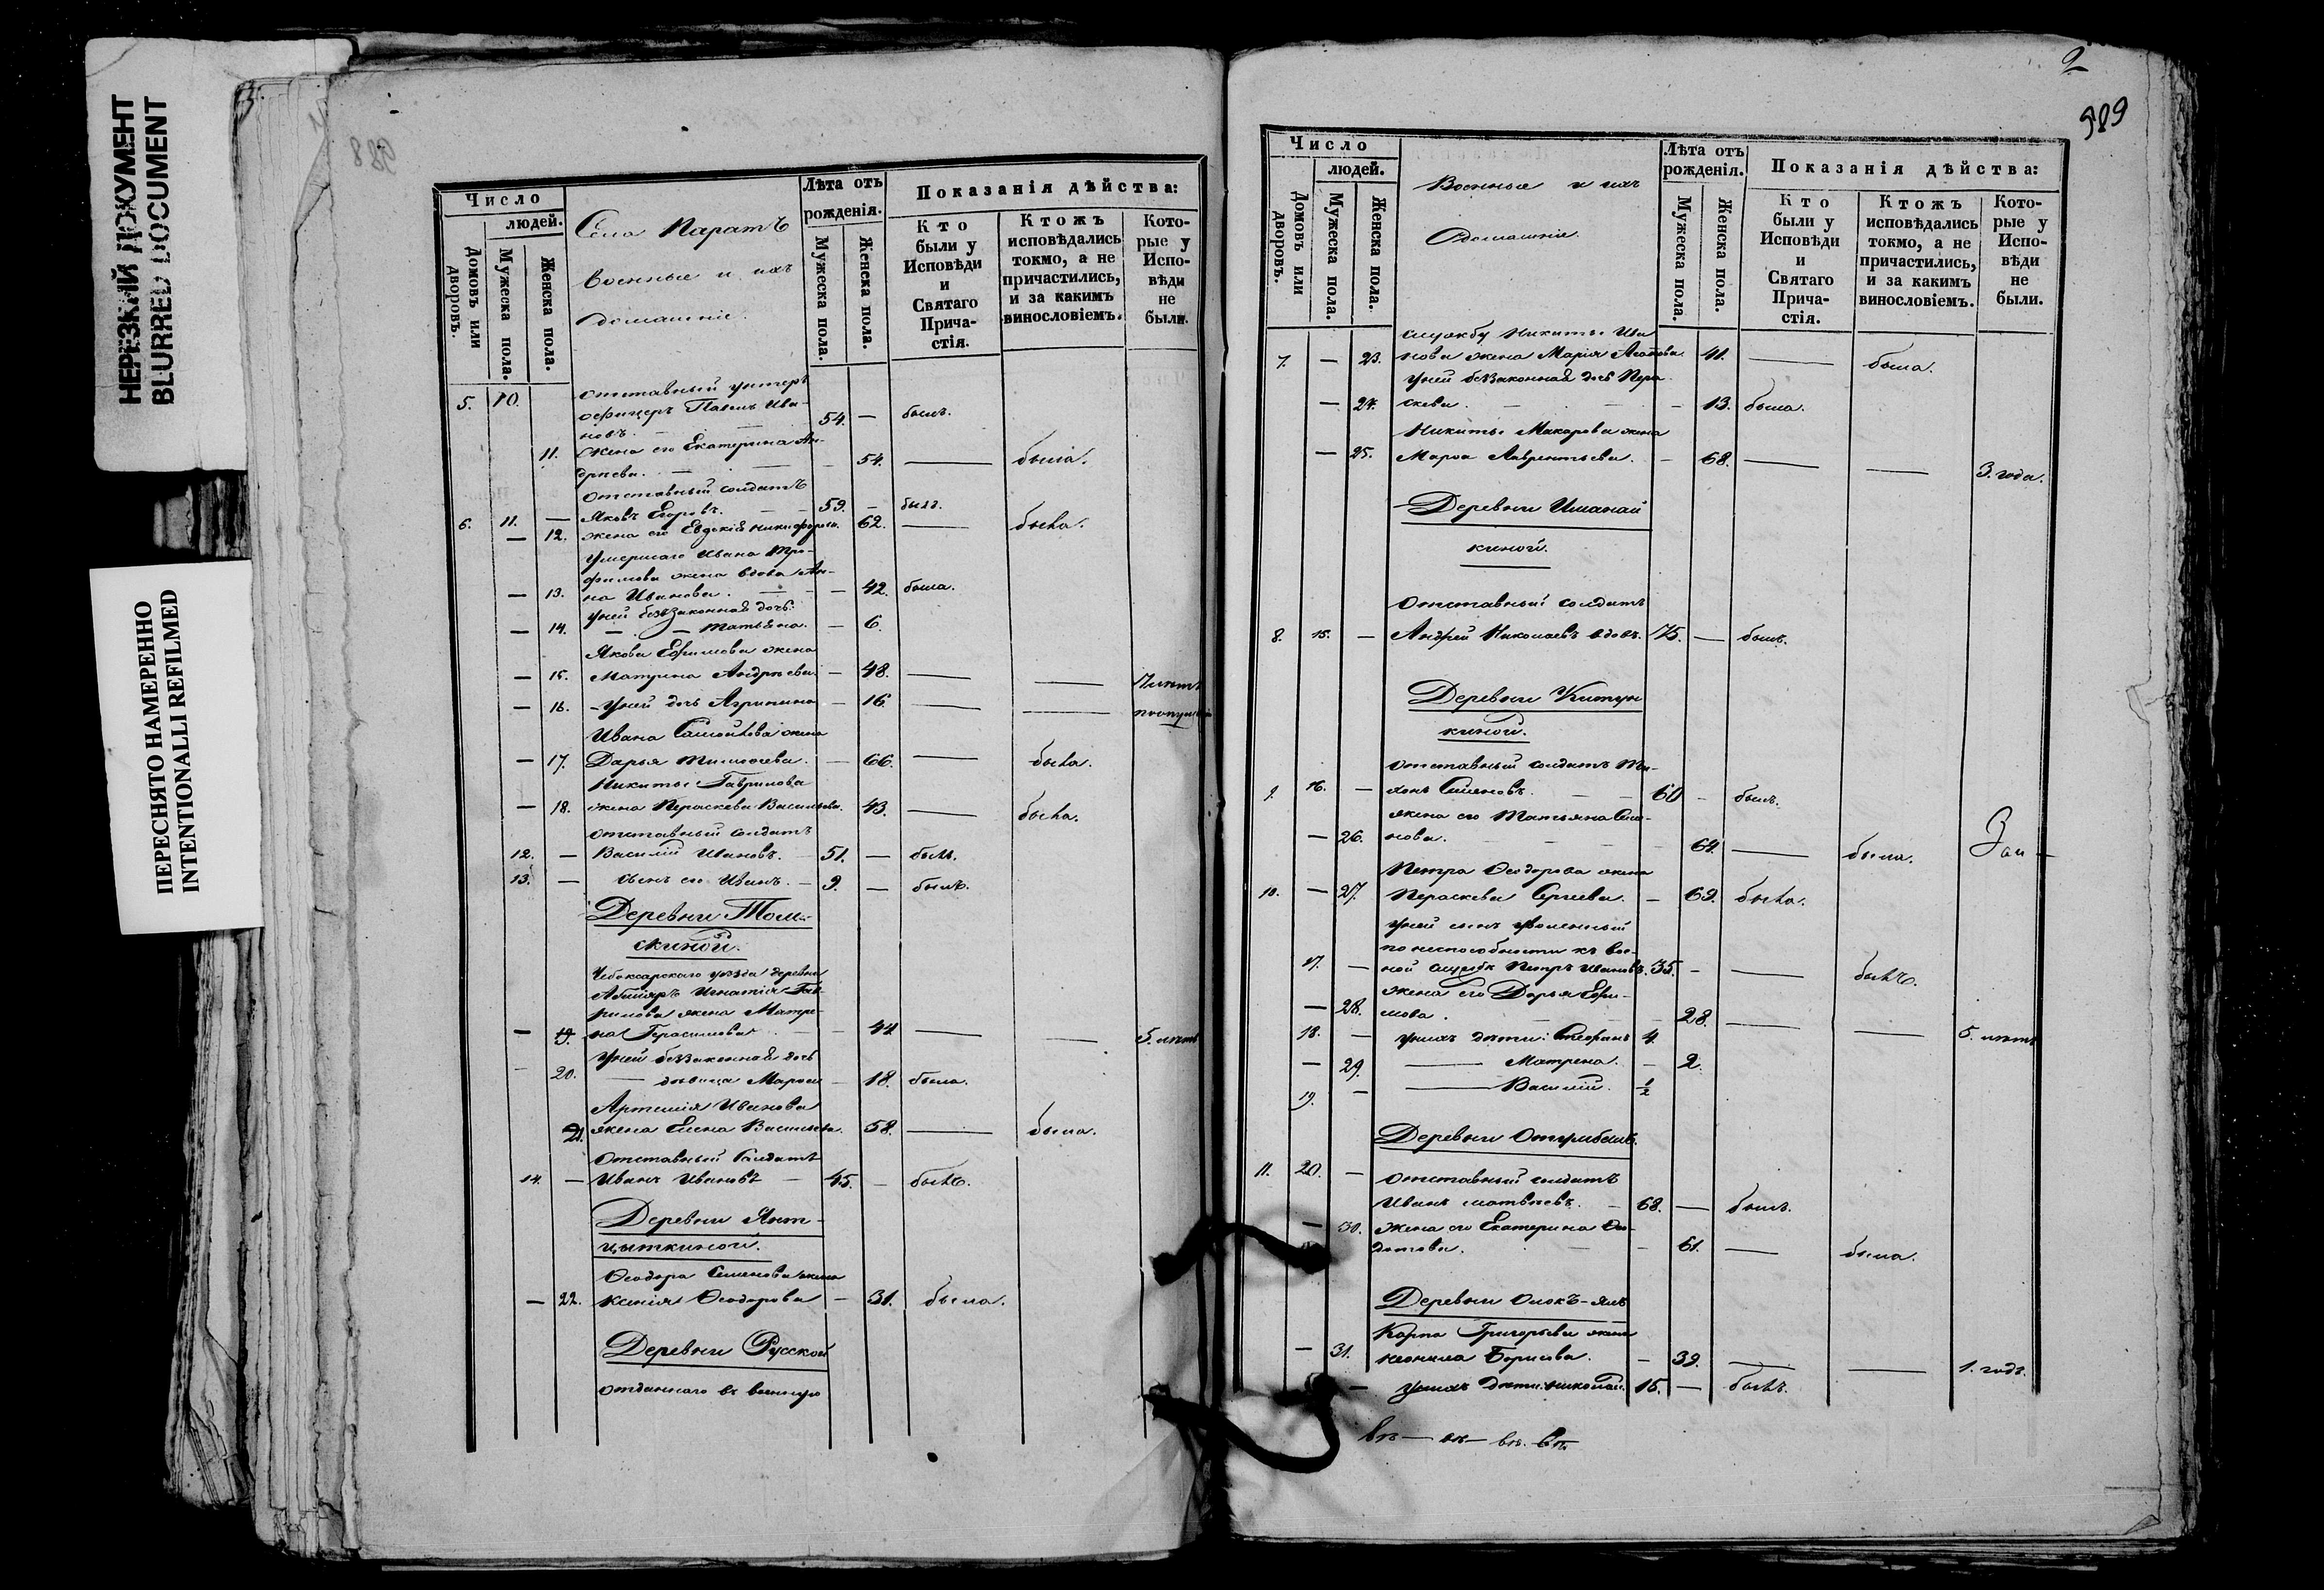 НЕРЕЗКИЙ ДОКУМЕНТ
BLURRED DOCUMENT
ПЕРЕСНЯТО НАМЕРЕННО
INTENTIONALLI REFILMED
988
Число
людей.
Домовъ или дворовъ.
Мужеска пола.
Женска пола.
Села Паратъ
военные и ихъ
домашніе.
Лѣта отъ рожденія.
Мужеска пола.
Женска пола.
Показанія дѣйства:
Кто были у Исповѣди и Святаго Причастія.
Ктожъ исповѣдались токмо, а не причастились, и за какимъ винословіемъ.
Которые у Исповѣди не были.
5. 10. отставный унтеръ
офицеръ Павелъ Ива-
новъ. 54. — былъ.
11. жена его Екатерина Ан-
дреева. — 54. — была.
отставный солдатъ
6. 11. — Яковъ Егоровъ. 59. — былъ.
— 12. жена его Евдокія Никифорова. 62. — была.
Умершаго Ивана Тро-
фимова жена вдова Ан-
— 13. на Иванова. — 42. была.
у ней беззаконная дочь
— 14. — Татьяна. — 6.
Якова Ефимова жена
— 15. Матрина Андреева — 48. — —
— 16. у ней дочь Агрипина — 16. — —
Ивана Самойлова жена
— 17. Дарья Тимофеева. — 66. — была.
Никиты Гаврилова
— 18. жена Параскева Васильева. 43. — была.
отставный солдатъ
12. — Василій Ивановъ. — 51. — былъ.
13. — сынъ его Иванъ. — 9. — былъ.
Деревни Том-
скиной.
Чебоксарскаго уѣзда деревни
Игнатія Гав-
рилова жена Матре-
— 19. на Герасимова — 44 — — 5. лѣтъ
у ней беззаконная дочь
20. — дѣвица Марѳа — 18. была.
Артемія Иванова
21. жена Елена Васильева. 58. — была.
отставный солдатъ
14. — Иванъ Ивановъ — 45. — былъ.
Деревни Янт-
цыткиной.
Ѳеодора Семенова жена
— 22. Ксенія Ѳеодорова — 31. была.
Деревни Русской
отданнаго въ военную
2
989
Число
людей.
Домовъ или дворовъ.
Мужеска пола.
Женска пола.
Военные и ихъ
домашніе.
Лѣта отъ рожденія.
Мужеска пола.
Женска пола.
Показанія дѣйства:
Кто были у Исповѣди и Святаго Причастія.
Ктожъ исповѣдались токмо, а не причастились, и за какимъ винословіемъ.
Которые у Исповѣди не были.
службу Никиты Ива
7. — 23. нова жена Марія 41. — была.
у ней беззаконная дочь Пара
— 24. скева. — 13. была.
Никиты Макарова жена
— 25. Марѳа Лаврентьева. — 68. — — 3. года.
Деревни Иманай
киной.
отставный солдатъ
8. 15. — Андрей Николаевъ вдовъ. 75. — былъ.
Деревни Китун
киной.
отставный солдатъ Ти-
9. 16. — хонъ Семеновъ. 60 — былъ.
жена его Татьяна Семе-
— 26. нова. 64. — была.
Петра Ѳеодорова жена
10. — 27. Параскева Сергеева. — 69. была.
у ней сынъ уволенный
по неспособности къ вое-
17. — ной службѣ Петръ Ивановъ. 35. — — былъ.
жена его Дарья Ефи-
— 28. мова. 28. — — 5. лѣтъ
18. — у нихъ дѣти: Стефанъ 4.
— 29. — Матрена. — 2.
19. — — Василій. 1/2
Деревни Отумбалъ.
11. 20. — отставный солдатъ
Иванъ Матвѣевъ. — 68. — былъ.
— 30. жена его Екатерина Ѳео-
дотова. — 61. — была.
Деревни Олокъ-ялъ
Карпа Григорьева жена
— 31. Неонила Борисова. — 39. — — 1. годъ.
— у нихъ дѣти: Николай. 15. — былъ.